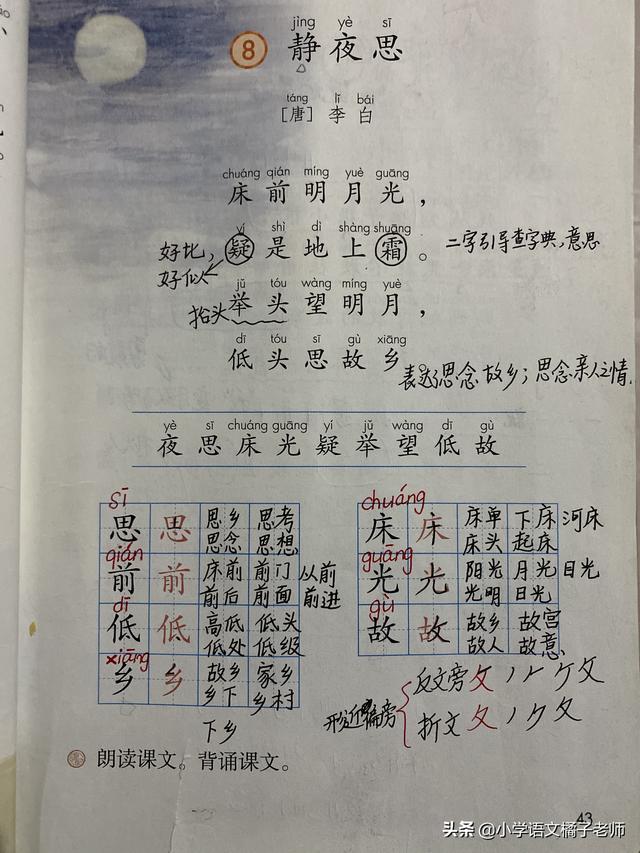 jìng yè sī
8 静夜思
táng lǐ bái
[唐] 李白
chuáng qián míng yuè guāng
床前明月光，
yí shì dì shàng shuāng
疑是地上霜。
好比，
好似
二字引导查字典，意思
jǔ tóu wàng míng yuè
举头望明月，
抬头
dī tóu sī gù xiāng
低头思故乡
表达了思念故乡；思念亲人之情
yè sī chuáng guāng yí jǔ wàng dī gù
夜思床光疑举望低故
sī
思 思 思乡 思考
思念 思想
qián
前 前 床前 前门 从前
前后 前面 前进
dī
低 低 高低 低头
低处 低级
xiāng
乡 乡 故乡 家乡
乡下 乡村
下乡
chuáng
床 床 床单 下床 河床
床头 起床
guāng
光 光 阳光 月光 目光
光明 日光
gù
故 故 故乡 故宫
故人 故意
形近偏旁
反文旁 攵
折文 夂
朗读课文。背诵课文。
43
头条 @小学语文橘子老师